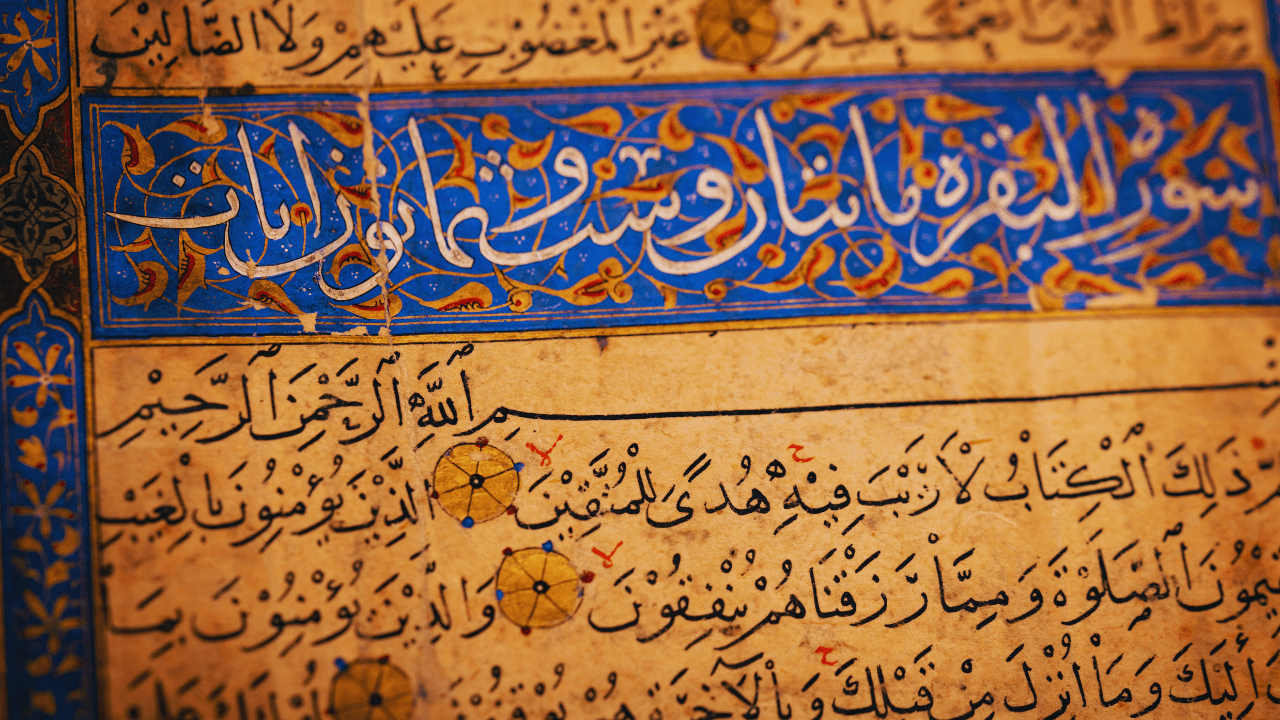 صِرَاطَ الَّذِيْنَ اَنْعَمْتَ عَلَيْهِمْ غَيْرِ الْمَغْضُوْبِ عَلَيْهِمْ وَلَا الضَّالِّيْنَ
سورة البقرة مائتان وست وثمانون ايات
بِسْمِ ٱللَّهِ ٱلرَّحْمٰنِ ٱلرَّحِيْمِ
ذٰلِكَ الْكِتَابُ لَا رَيْبَ فِيْهِ هُدًى لِلْمُتَّقِيْنَ الَّذِيْنَ يُؤْمِنُوْنَ بِالْغَيْبِ
وَيُقِيْمُوْنَ الصَّلٰوةَ وَمِمَّا رَزَقْنَاهُمْ يُنْفِقُوْنَ وَالَّذِيْنَ يُؤْمِنُوْنَ بِمَا
اِلَيْكَ وَمَا اُنْزِلَ مِنْ قَبْلِكَ وَبِالْاٰخِرَةِ هُمْ يُوْقِنُوْنَ